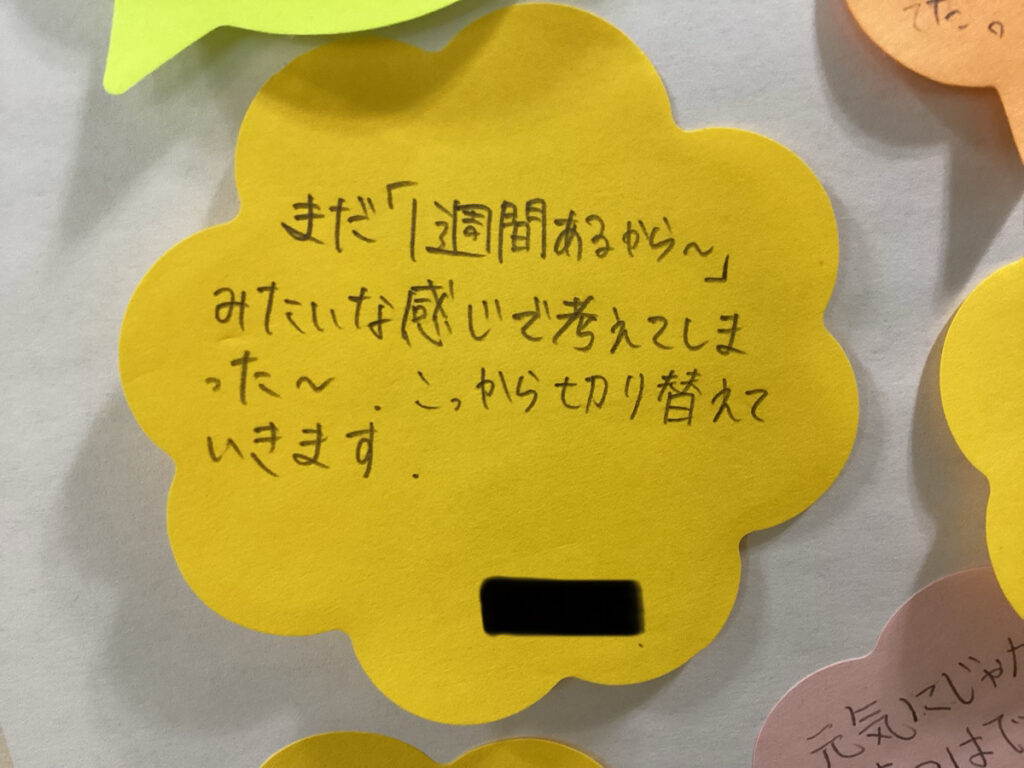 てた。
まだ「1週間あるから〜」
みたいな感じで考えてしま
った〜. こっから切り替えて
いきます.
元気にじゃか
はで